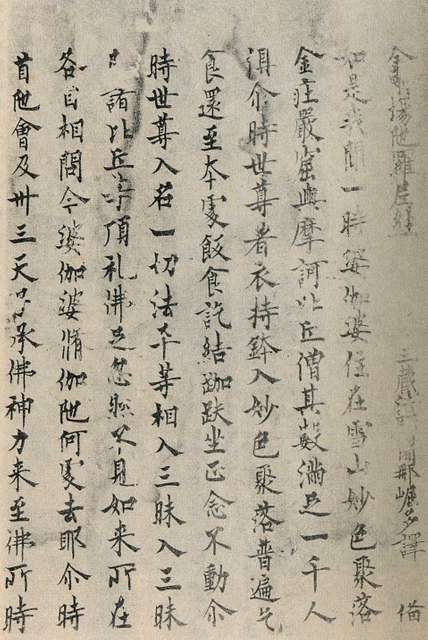 金剛場陁羅尼經 三藏闍那崛多譯
如是我聞一時婆伽婆住在雪山妙色聚落
金庄嚴窟與摩訶比丘僧其數滿足一千人
俱尒時世尊著衣持鉢入妙色聚落普遍乞
食還至本處飯食訖結跏趺坐正念不動尒
時世尊入名一切法平等相入三昧入三昧
諸比丘等頂礼佛足忽然不見如来所在
各自相問今婆伽婆脩伽陁何處去耶尒時
首陁會及卅三天等承佛神力来至佛所時